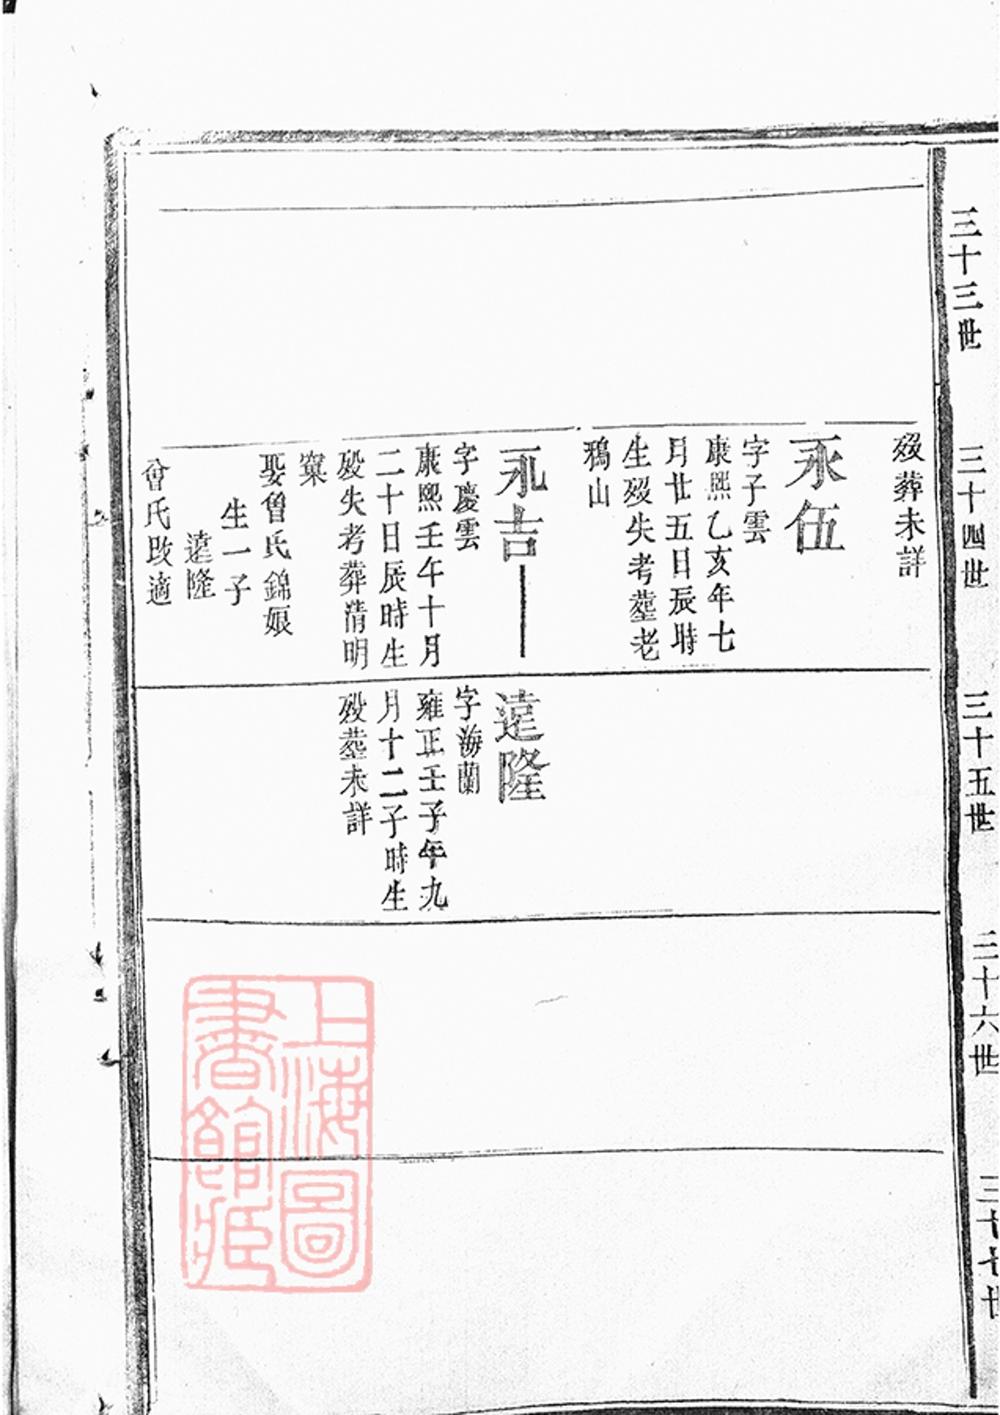 三十三世
三十四世
三十五世
三十六世
三十七世
歿葬未詳
永伍
字子雲
康熙乙亥年七
月廿五日辰時
生歿失考塟老
鴉山
永吉
字慶雲
康熙壬午十月
二十日辰時生
歿失考葬清明
窠
娶曾氏錦娘
生一子
遠隆
曾氏改適
遠隆
字海蘭
雍正壬子年九
月十二子時生
歿塟未詳
上海圖
書館藏